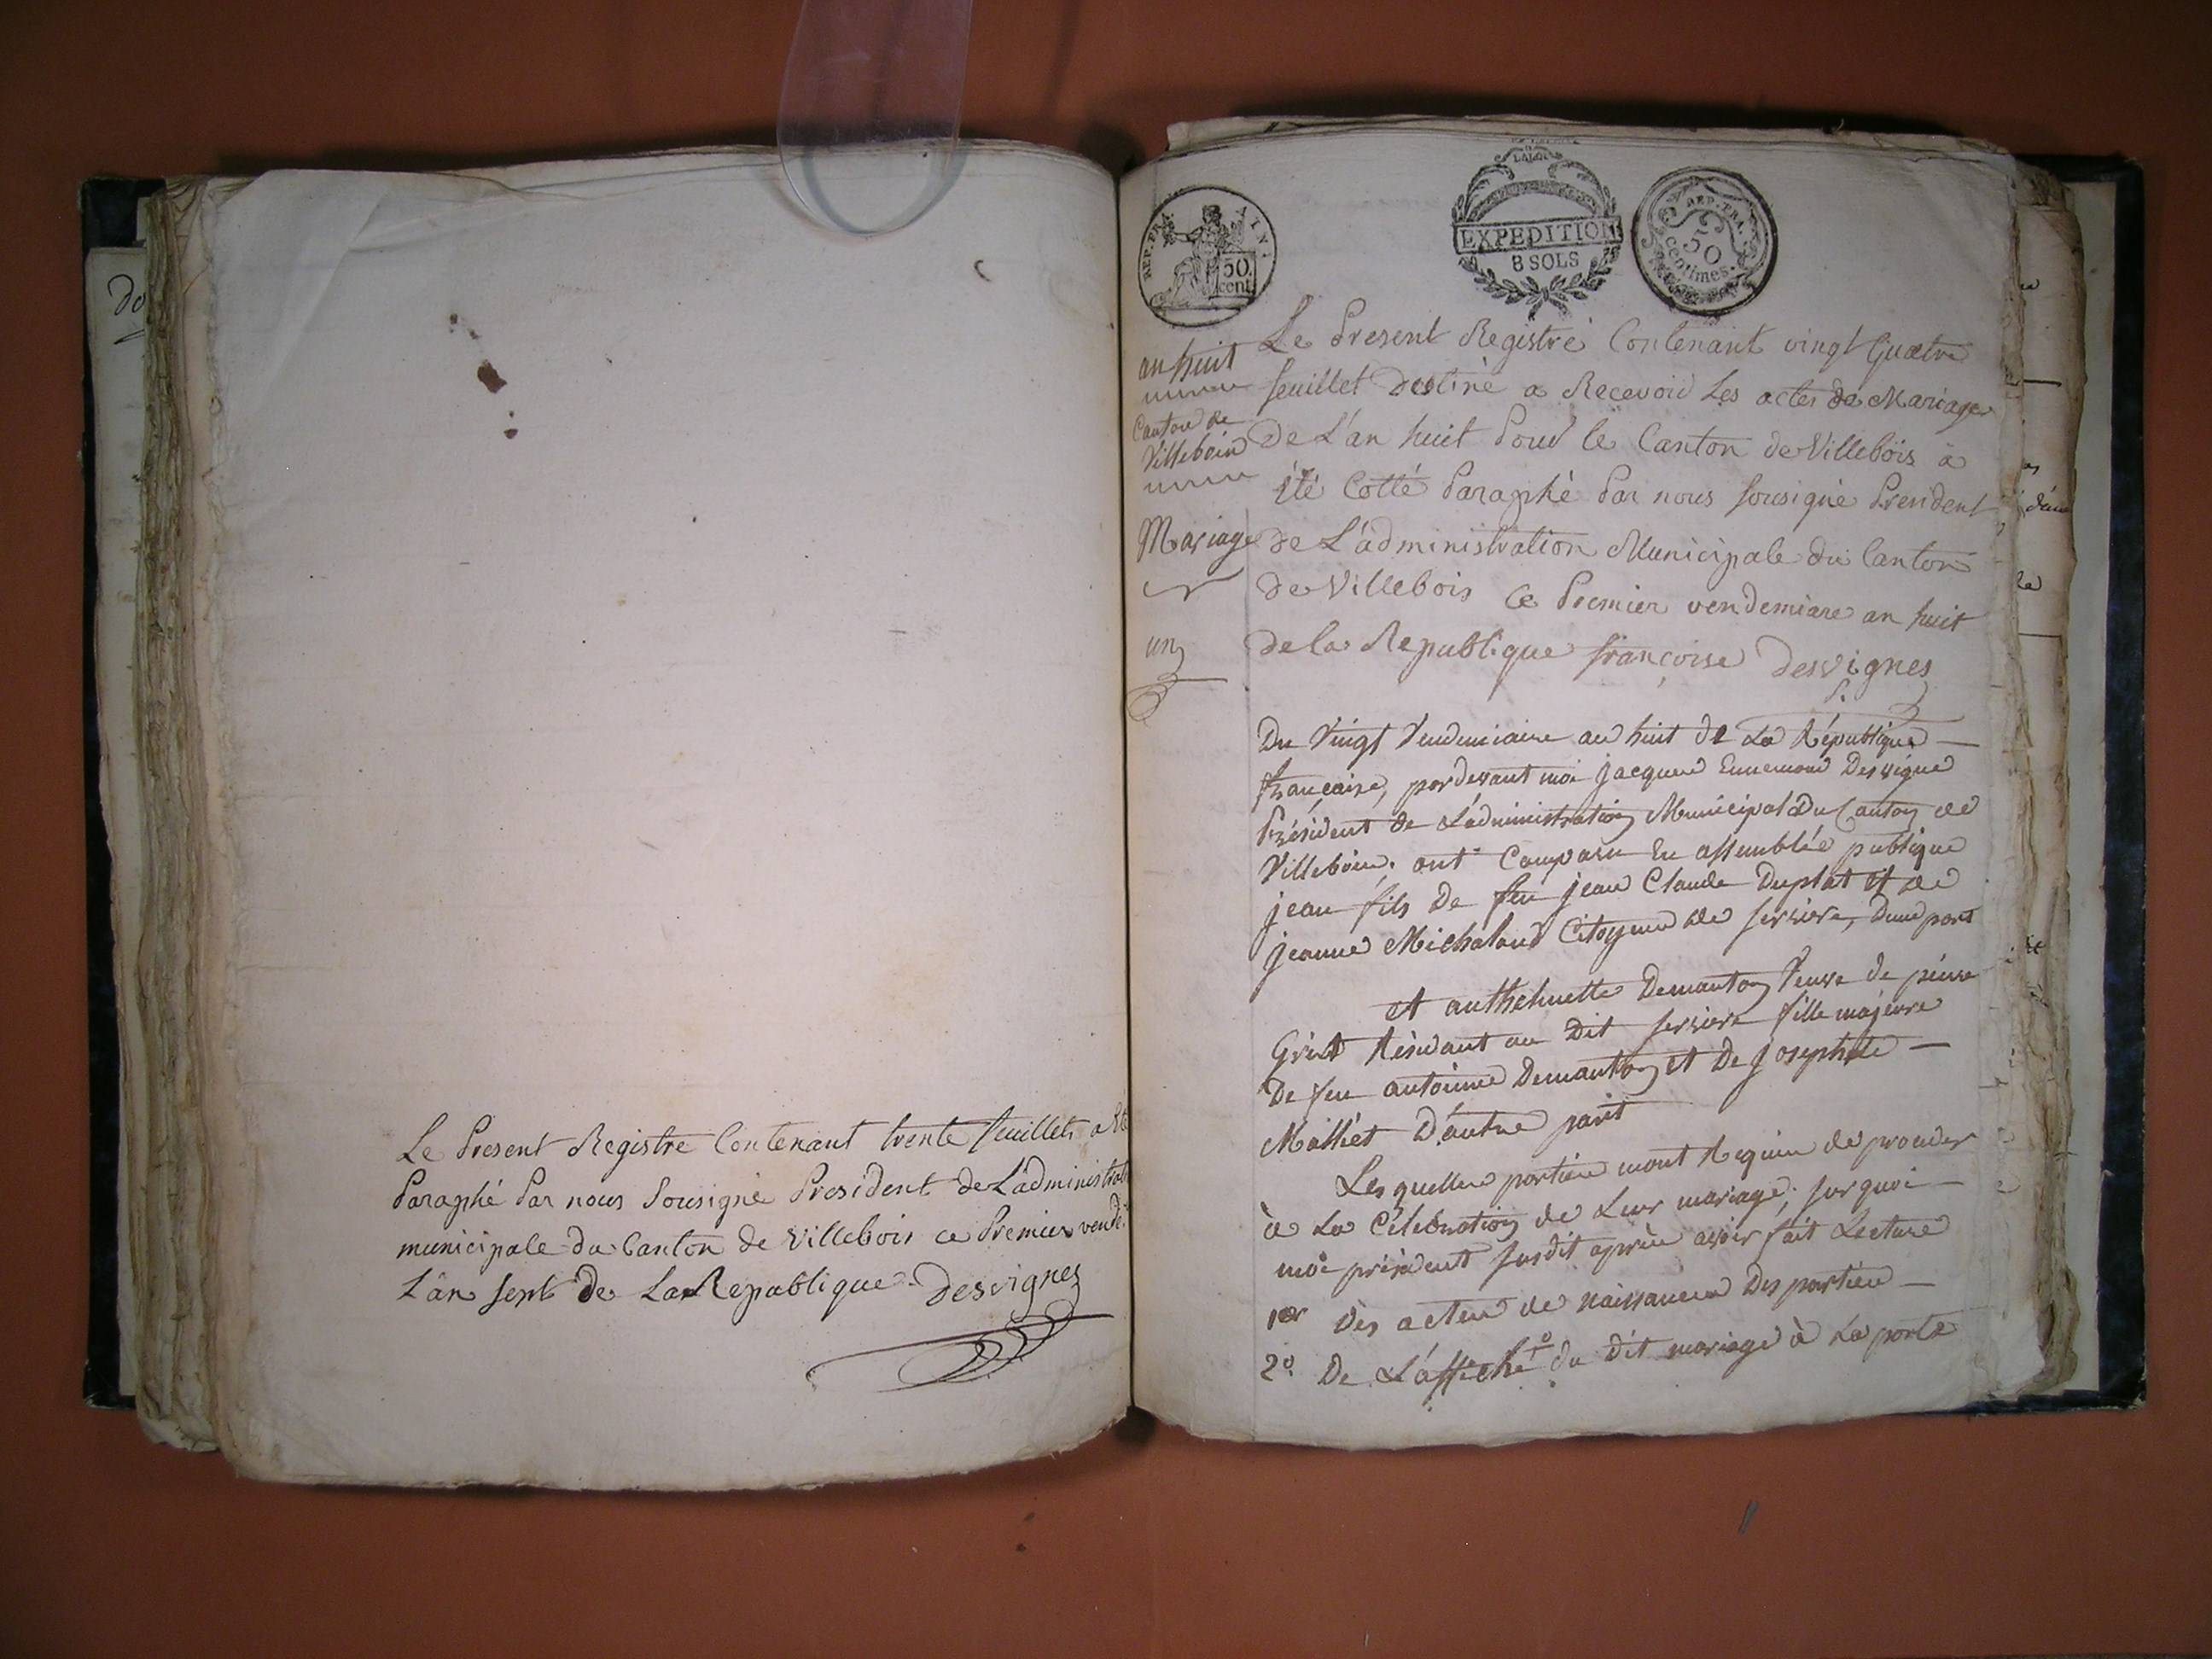 do
Le Present Registre Contenant trente feuillets a Eté
Paraphé Par nous Sousigné President de L'administrati
municipale du Canton de Villebois ce Premier vendé.
L'an sept de La Republique Desvignes
REP. FRA. AIN.
50.
cent.
LA LOI
EXPEDITION
8 SOLS
REP. FRA.
50
centimes.
an huit
Canton de
Villebois
Mariage
un
Le Present Registre Contenant vingt Quatre
feuillet destiné a Recevoir Les actes de Mariages
De L'an huit Pour le Canton de Villebois à
été Cotté Paraphé Par nous sousigné President
de L'administration Municipale du Canton
de Villebois Ce Premier vendemiare an huit
de la Republique françoise Desvignes
P.
Du Vingt Vendemiaire an huit de La République
française, pardevant moi Jacques Ennemond Desvigne
Président de L'administration Municipal Du Canton de
Villebois. ont Comparu En assemblée publique
jean fils De feu jean Claude Duplat et de
jeanne Michaloud Citoyen de serriere, Dune part
et anthelmette Demanton Veuve de pierre
Gvist Résidant au Dit serriere fille majeure
De feu antoinne Demanton et De josephte
Malliet D'autre part
Les quelles parties mont Requis de proceder
à La Célébration de Leur mariage; sur quoi
moi président susdit après avoir fait Lecture
1er Dès actes de naissances Des parties
2º. De L'affiche du dit mariage à La porte